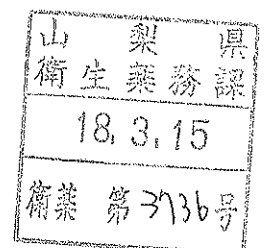 山梨県
衛生薬務課
18.3.15
衛薬 第3736号